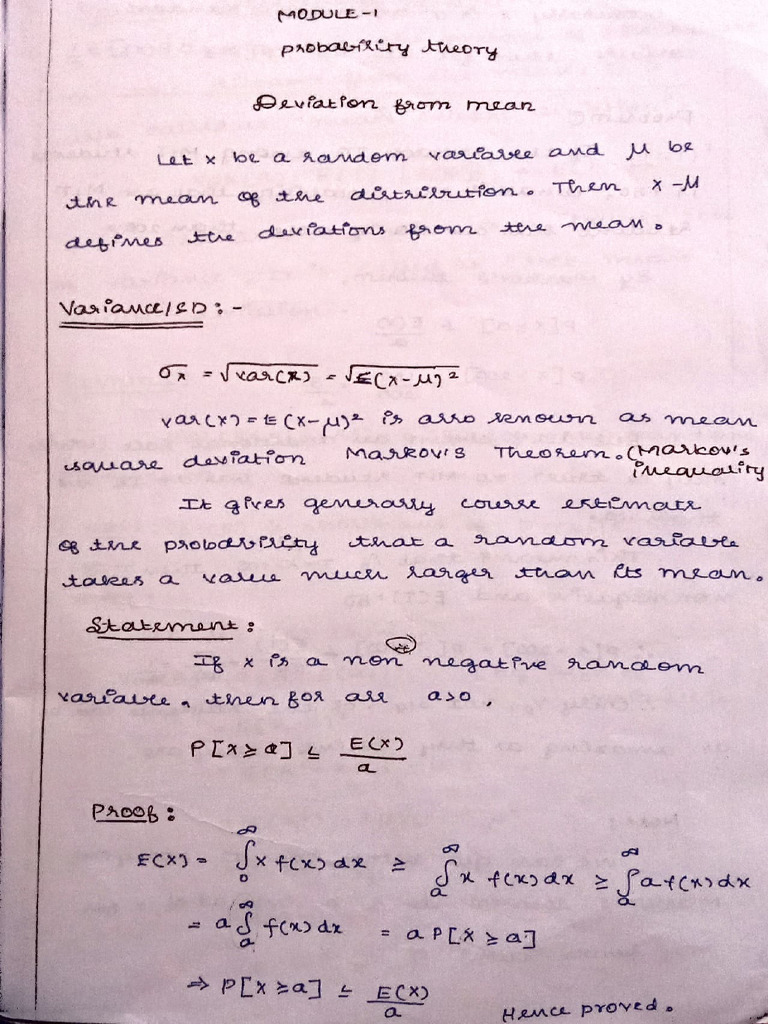 MODULE-1
probability theory
Deviation from mean
Let x be a random variable and μ be
the mean of the distribution. Then x-μ
defines the deviations from the mean.
Variance/SD:-
σx = √var(x) = √E(x-μ)²
var(x) = E(x-μ)² is also known as mean
square deviation Markov's Theorem. (Markov's
inequality
It gives generally course estimate
of the probability that a random variable
takes a value much larger than its mean.
Statement:
If x is a non negative random
variable, then for all a>0,
P[x ≥ a] ≤ E(x)/a
Proof:
E(x) = ∫₀^∞ x f(x) dx ≥ ∫ₐ^∞ x f(x) dx ≥ ∫ₐ^∞ a f(x) dx
= a ∫ₐ^∞ f(x) dx = a P[x ≥ a]
⇒ P[x ≥ a] ≤ E(x)/a
Hence proved.